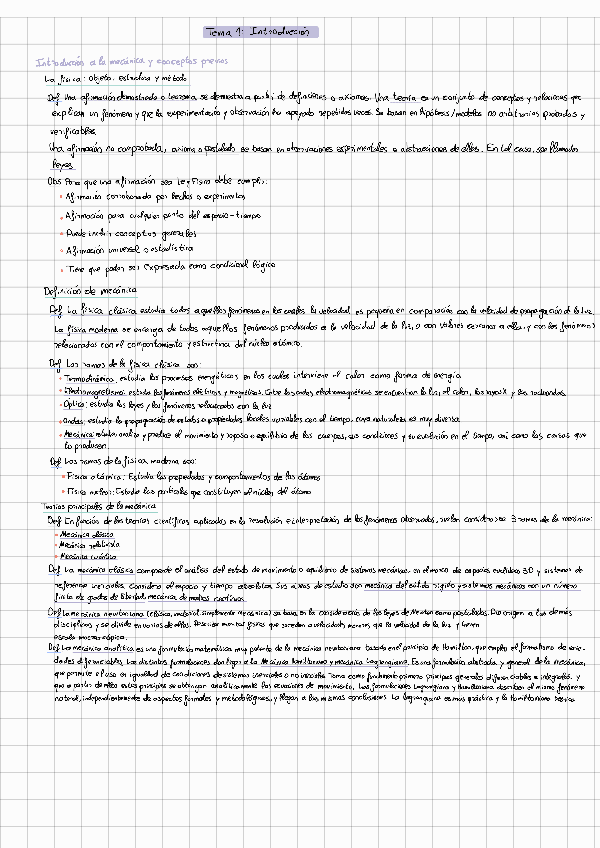 Tema 1: Introducción
Introducción a la mecánica y conceptos previos
La física: objeto, estructura y método
Def Una afirmación demostrada o teorema se demuestra a partir de definiciones o axiomas. Una teoría es un conjunto de conceptos y relaciones que
explican un fenómeno y que la experimentación y observación ha apoyado repetidas veces. Se basan en hipótesis/modelos no arbitrarios probados y
verificables.
Una afirmación no comprobada, axioma o postulado se basan en observaciones experimentales o abstracciones de ellos. En tal caso, son llamados
leyes.
Obs Para que una afirmación sea Ley Física debe cumplir:
• Afirmación corroborada por hechos o experimentos
• Afirmación para cualquier punto del espacio-tiempo
• Puede incluir conceptos generales
• Afirmación universal o estadística
• Tiene que poder ser expresada como condicional lógico
Definición de mecánica
Def La física clásica estudia todos aquellos fenómenos en los cuales la velocidad es pequeña en comparación con la velocidad de propagación de la luz.
La física moderna se encarga de todos aquellos fenómenos producidos a la velocidad de la luz, o con valores cercanos a ella, y con los fenómenos
relacionados con el comportamiento y estructura del núcleo atómico.
Def Las ramas de la física clásica son:
• Termodinámica: estudia los procesos energéticos en los cuales interviene el calor como forma de energía
• Electromagnetismo: estudia los fenómenos eléctricos y magnéticos. Entre las ondas electromagnéticas se encuentran la luz, el calor, los rayos X y las radioondas.
• Óptica: estudia las leyes y los fenómenos relacionados con la luz
• Ondas: estudia la propagación de estados o propiedades locales variables con el tiempo, cuya naturaleza es muy diversa
• Mecánica: estudia, analiza y predice el movimiento y reposo o equilibrio de los cuerpos, sus condiciones y su evolución en el tiempo, así como las causas que
lo producen.
Def Las ramas de la física moderna son:
• Física atómica: Estudia las propiedades y comportamientos de los átomos
• Física nuclear: Estudia las partículas que constituyen el núcleo del átomo
Teorías principales de la mecánica
Def En función de las teorías científicas aplicadas en la resolución e interpretación de los fenómenos observados, suelen considerarse 3 ramas de la mecánica:
• Mecánica clásica
• Mecánica relativista
• Mecánica cuántica
Def La mecánica clásica comprende el análisis del estado de movimiento o equilibrio de sistemas mecánicos, en el marco de espacios euclídeos 3D y sistemas de
referencia inerciales. Considera el espacio y tiempo absolutos. Sus áreas de estudio son mecánica del sólido rígido y sistemas mecánicos con un número
finito de grados de libertad, mecánica de medios continuos.
Def La mecánica newtoniana (clásica, vectorial, simplemente mecánica) se basa en la consideración de las leyes de Newton como postulados. Da origen a las demás
disciplinas y se divide en varias de ellas. Describe eventos físicos que suceden a velocidades menores que la velocidad de la luz y tienen
escala macroscópica.
Def La mecánica analítica es una formulación matemática muy potente de la mecánica newtoniana basada en el principio de Hamilton, que emplea el formalismo de varie-
dades diferenciables. Las distintas formulaciones dan lugar a la Mecánica Hamiltoniana y mecánica Lagrangiana. Es una formulación abstracta y general de la mecánica,
que permite el uso en igualdad de condiciones de sistemas inerciales o no inerciales. Toma como fundamento primero principios generales diferenciables e integrables, y
que a partir de ellos estos principios se obtengan analíticamente las ecuaciones de movimiento. Las formulaciones Lagrangiana y Hamiltoniana describen el mismo fenómeno
natural, independientemente de aspectos formales y metodológicos, y llegan a las mismas conclusiones. La lagrangiana es más práctica y la Hamiltoniana teórica